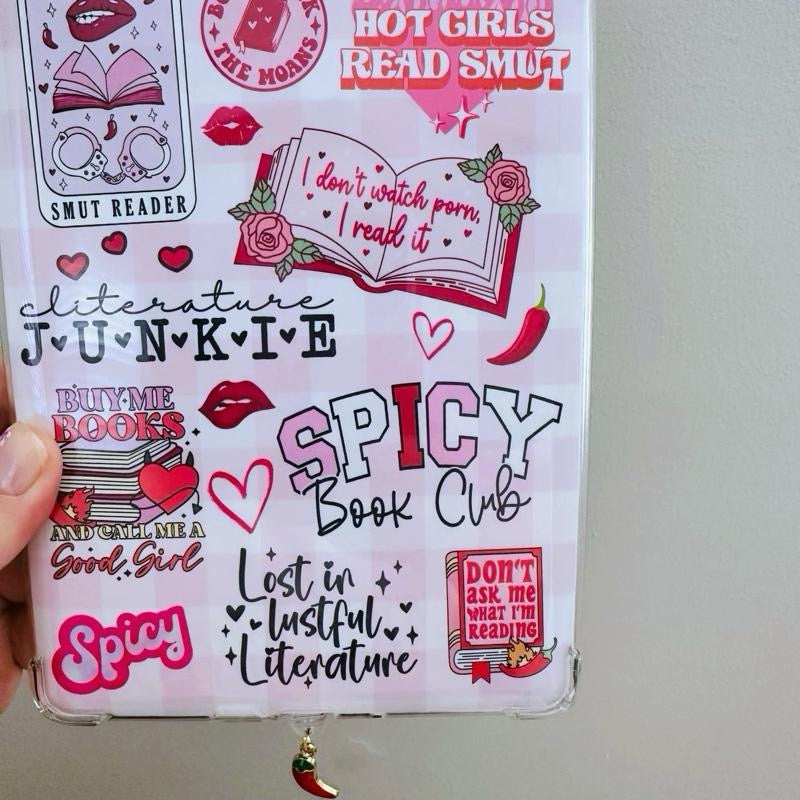 HOT GIRLS
READ SMUT
THE MOANS
SMUT READER
I don't watch porn,
I read it
cliterature
JUNKIE
BUY ME
BOOKS
AND CALL ME A
Good Girl
SPICY
Book Club
Spicy
Lost in
lustful
Literature
DON'T
ASK ME
WHAT I'M
READING